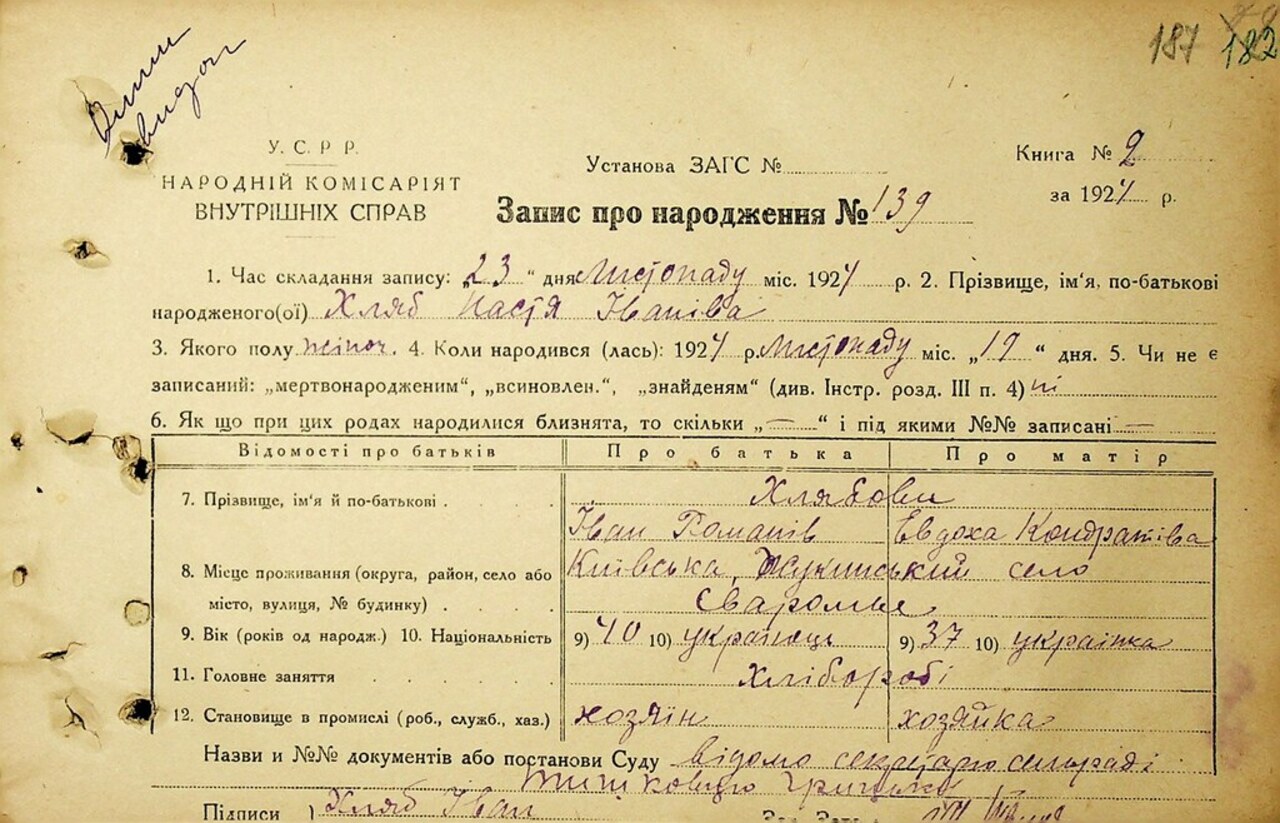 187 182
Випис
видан
У. С. Р. Р.
НАРОДНІЙ КОМІСАРІЯТ
ВНУТРІШНІХ СПРАВ
Установа ЗАГС №
Книга № 2
за 1924 р.
Запис про народження № 139
1. Час складання запису: „23“ дня Листопаду міс. 1924 р. 2. Прізвище, ім'я, по-батькові
народженого(ої) Хляб Настя Іванівa
3. Якого полу жіноч. 4. Коли народився (лась): 1924 р. Листопаду міс. „19“ дня. 5. Чи не є
записаний: „мертвонародженим“, „всиновлен.“, „знайденям“ (див. Інстр. розд. III п. 4) ні
6. Як що при цих родах народилися близнята, то скільки „—“ і під якими №№ записані —
Відомості про батьків Про батька Про матір
7. Прізвище, ім'я й по-батькові Хлябови
Іван Романів Евдоха Кондратіва
8. Місце проживання (округа, район, село або Київська, Жукинський село
місто, вулиця, № будинку) Сваромье
9. Вік (років од народж.) 10. Національність 9) 40 10) українець 9) 37 10) українка
11. Головне заняття Хлібороbі
12. Становище в промислі (роб., служб., хаз.) хозяїн хозяйка
Назви и №№ документів або постанови Суду відомо секретарю сельраді
Грицько
Підписи Хляб Іван